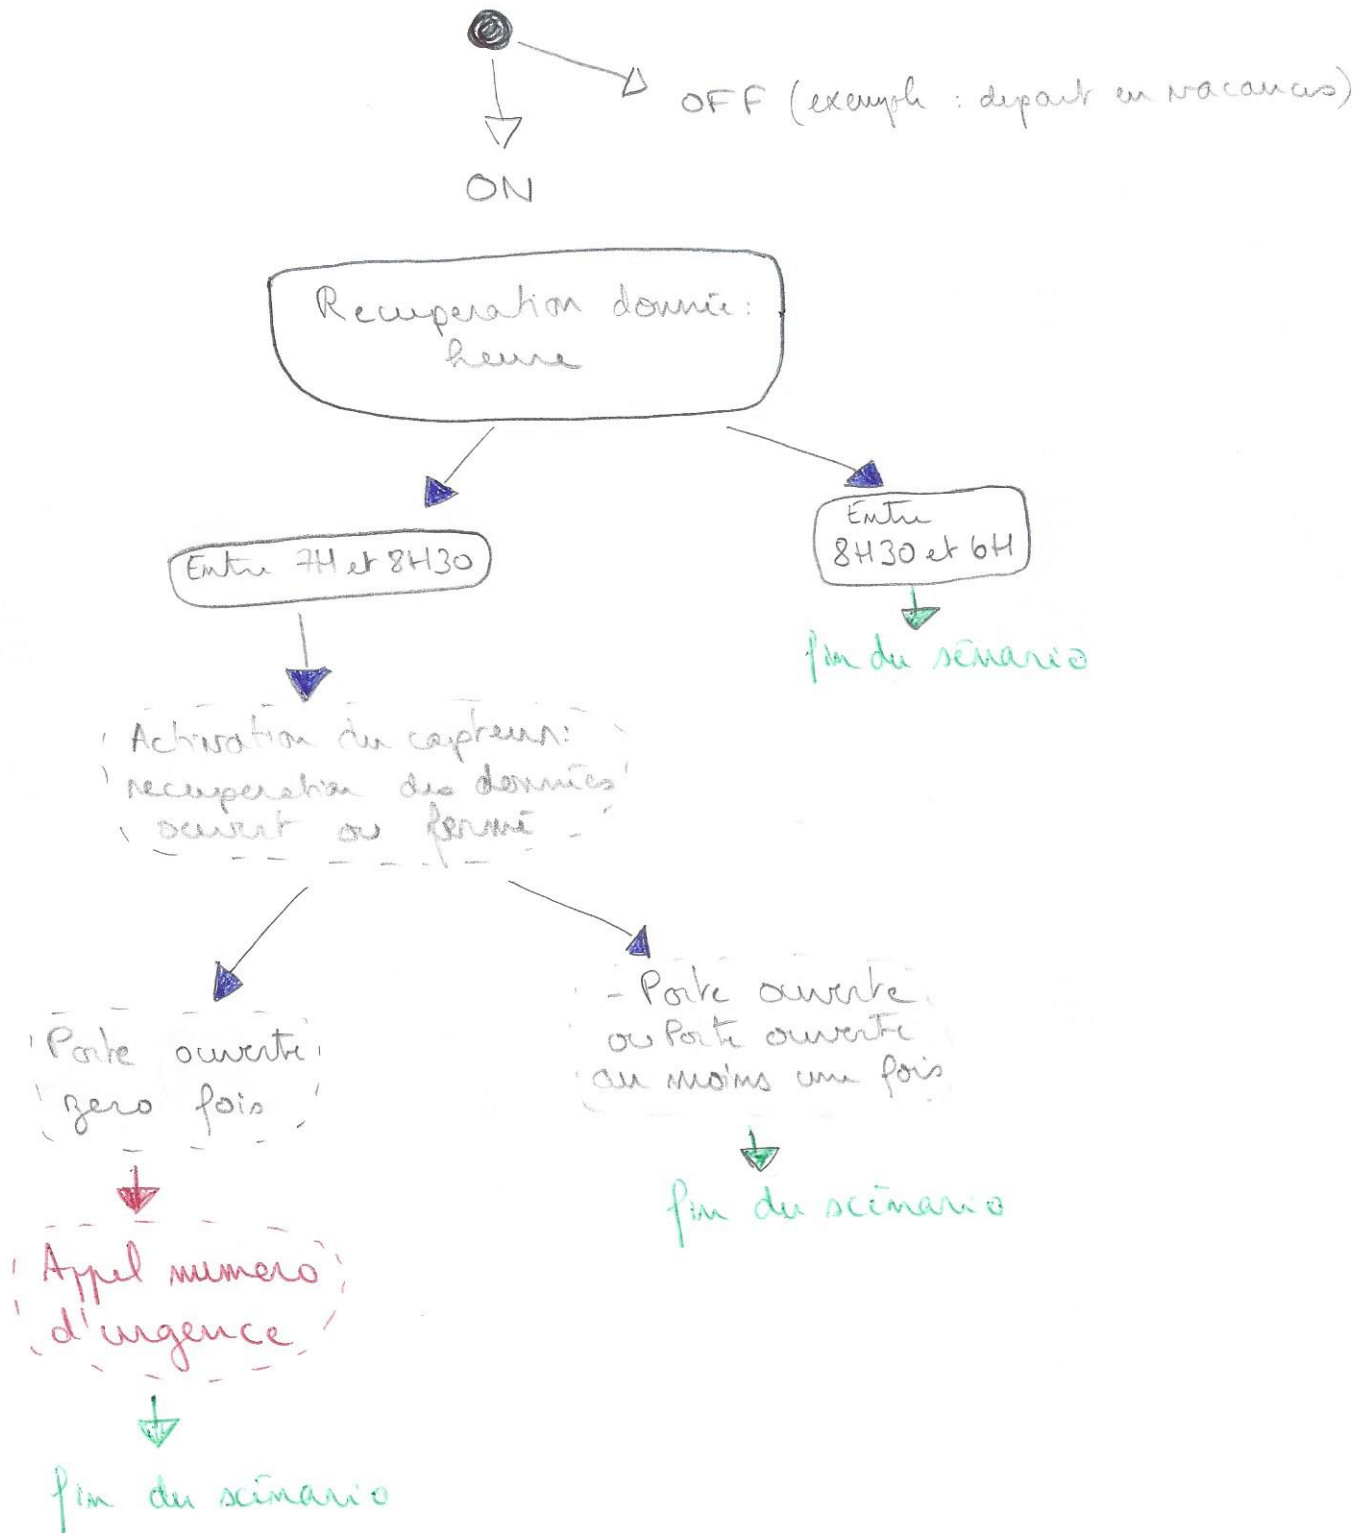 OFF (exemple : depart en vacances)
ON
Recuperation donnée :
heure
Entre 7H et 8H30
Entre
8H30 et 6H
fin du sénario
Activation du capteur :
recuperation des données
ouvert ou fermé
Porte ouverte
zero fois
- Porte ouverte
ou Porte ouverte
au moins une fois
Appel numero
d'urgence
fin du scénario
fin du scénario